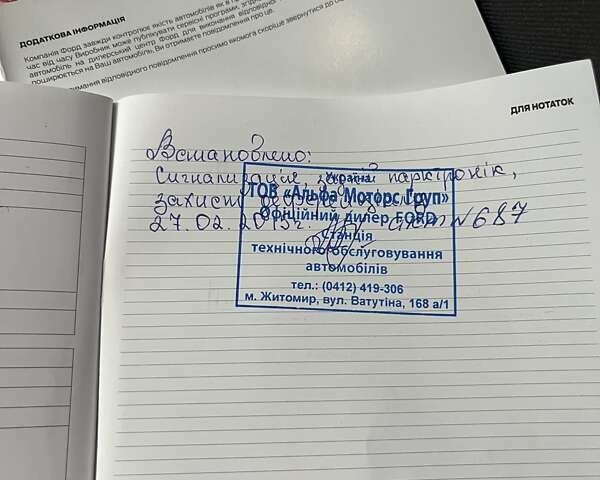 ДОДАТКОВА ІНФОРМАЦІЯ
Компанія Форд завжди контролює якість автомобілів
час від часу Виробник може публікувати сервісні програми,
автомобіль на дилерський центр Форд для виконання відповідної
поширюється на Ваш автомобіль, Ви отримаєте повідомлення про це.
відповідного повідомлення просимо якомога скоріше звернутися до
ДЛЯ НОТАТОК
Встановлено:
Сигналізація, задній парктронік,
захист
27.02.2015г. акт №687
Україна
ТОВ «Альфа Моторс Груп»
Офіційний дилер FORD
Станція
технічного обслуговування
автомобілів
тел.: (0412) 419-306
м. Житомир, вул. Ватутіна, 168 а/1